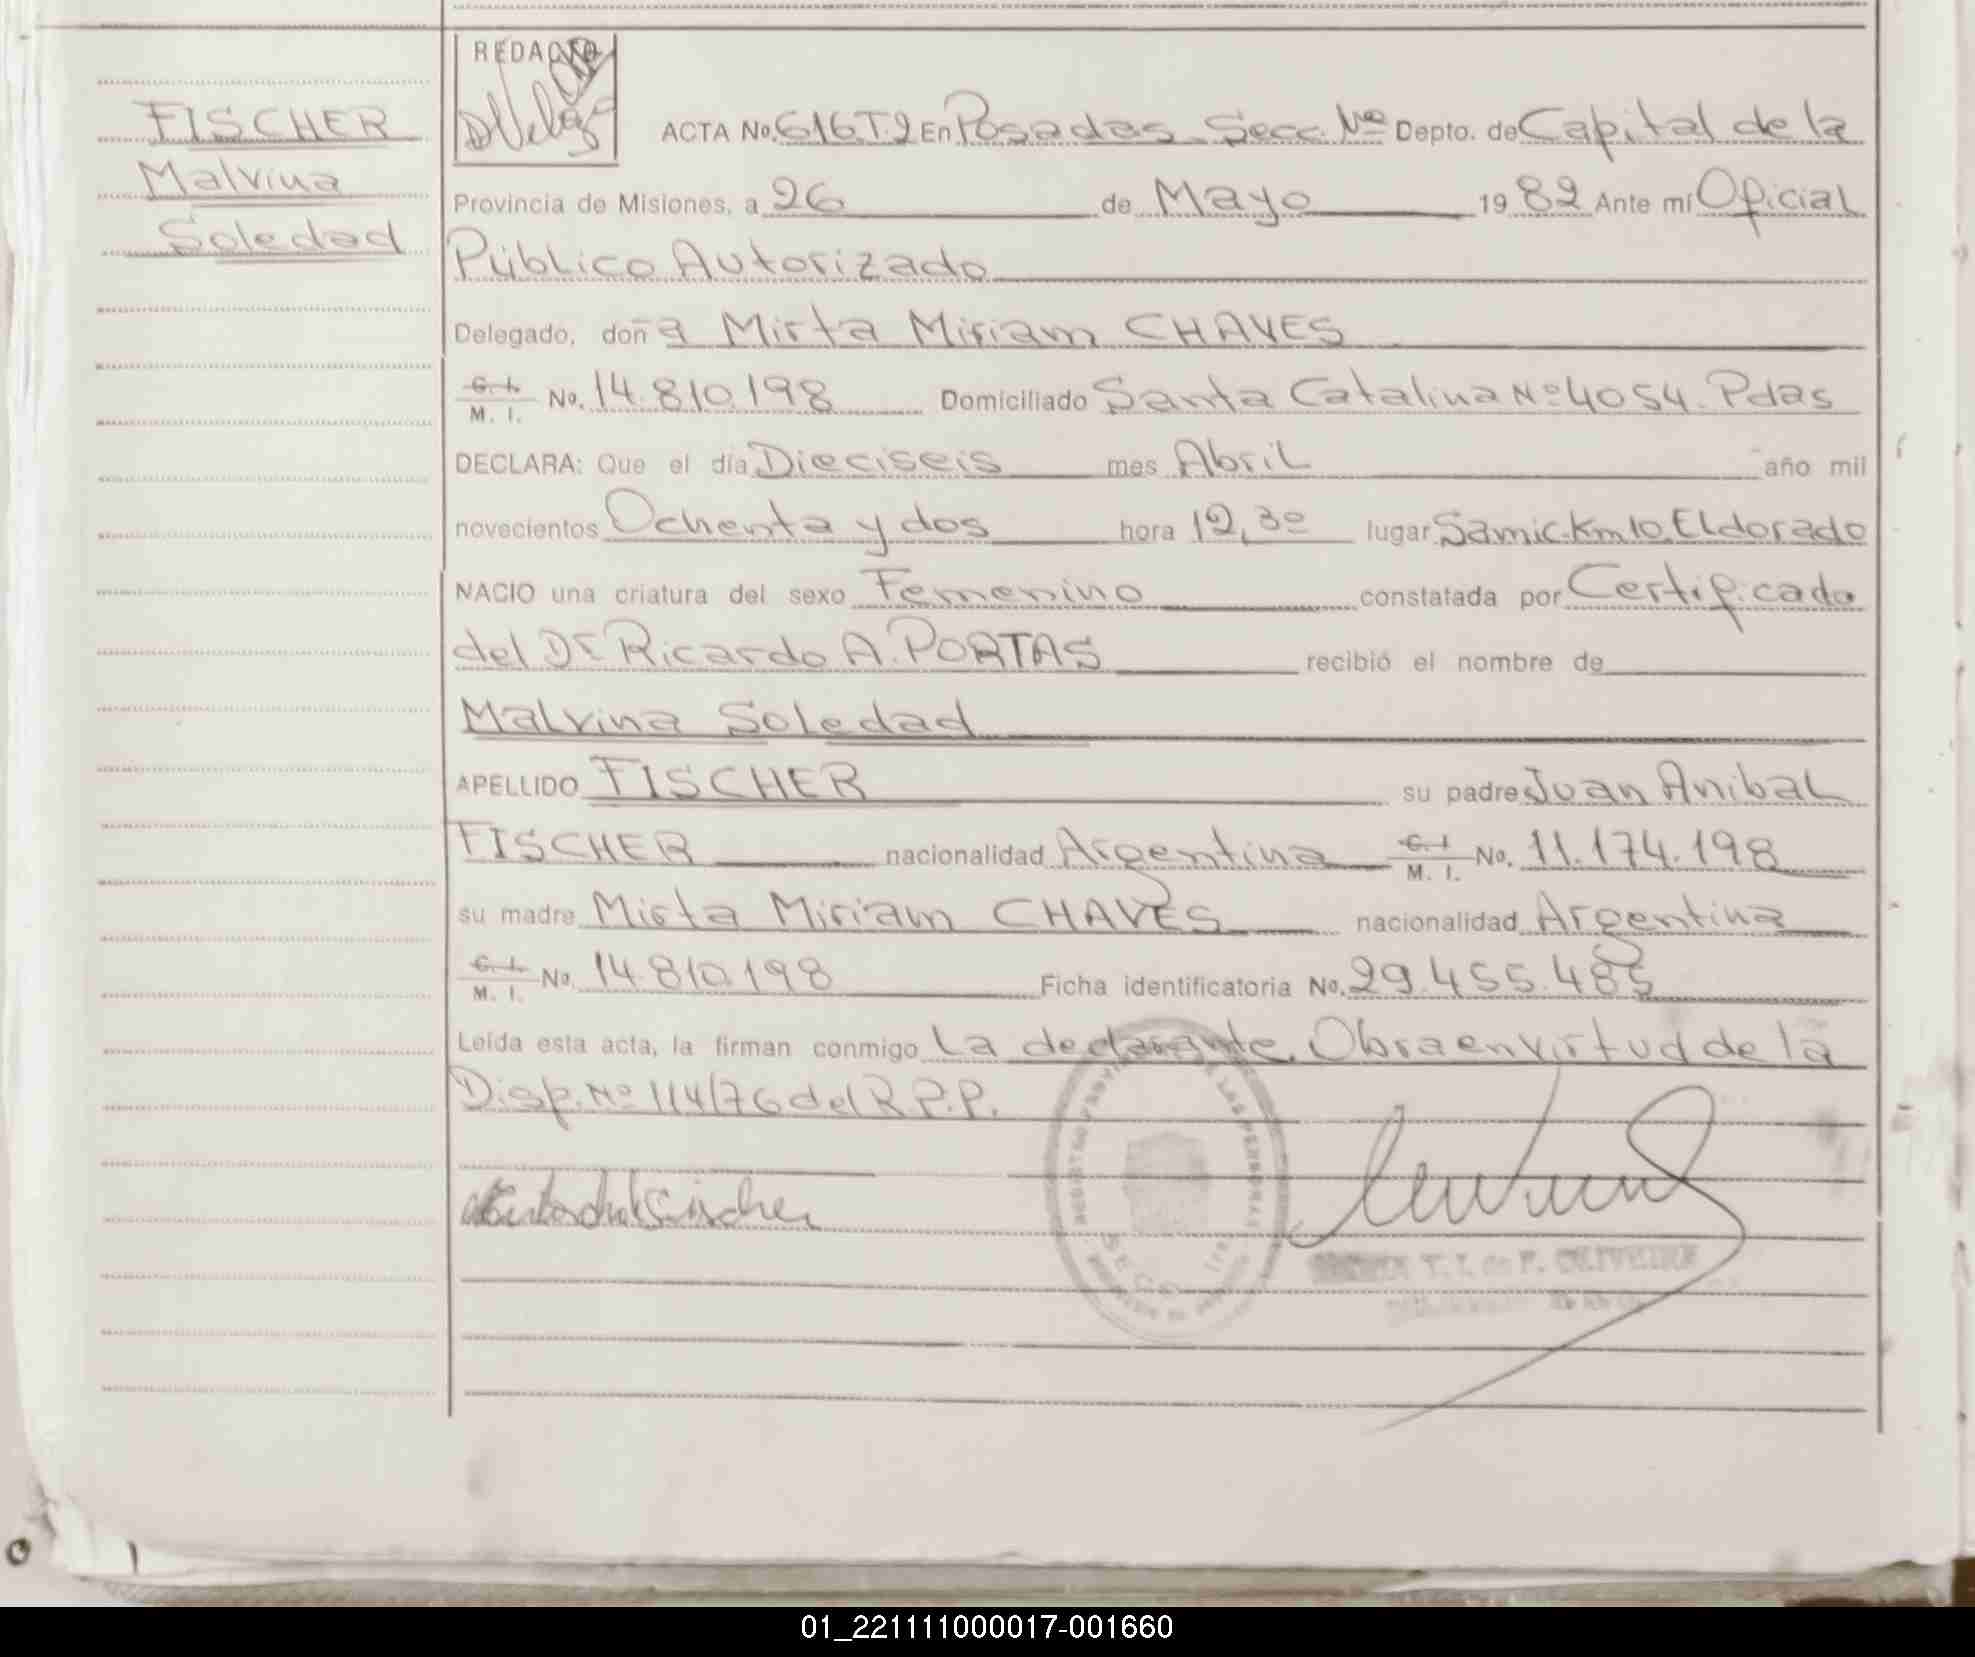 REDACTO
FISCHER
Malvina
Soledad
ACTA No. 616T.2 En Posadas Secc. Nº Depto. de Capital de la
Provincia de Misiones, a 26 de Mayo 1982 Ante mí Oficial
Público Autorizado
Delegado, doña Mirta Miriam CHAVES
C. I.
M. I. No. 14.810.198 Domiciliado Santa Catalina Nº 4054. Pdas
DECLARA: Que el día Dieciseis mes Abril año mil
novecientos Ochenta y dos hora 12,30 lugar Samic. Km 10. Eldorado
NACIO una criatura del sexo Femenino constatada por Certificado
del Dr Ricardo A. PORTAS recibió el nombre de
Malvina Soledad
APELLIDO FISCHER su padre Juan Anibal
FISCHER nacionalidad Argentina C. I.
M. I. No. 11.174.198
su madre Mirta Miriam CHAVES nacionalidad Argentina
C. I.
M. I. No. 14.810.198 Ficha identificatoria No. 29.455.485
Leída esta acta, la firman conmigo La declarante. Obra en virtud de la
Disp. Nº 114/76 del R.P.P.
T. I. de P. OLIVEIRA
01_221111000017-001660